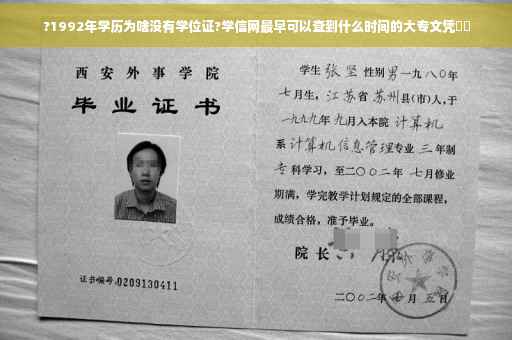 ?1992年学历为啥没有学位证?学信网最早可以查到什么时间的大专文凭
西安外事学院
毕业证书
证书编号:0209130411
学生 张坚 性别男一九八〇年
七月生，江苏省 苏州县(市)人,于
一九九九年 九月入本院 计算机
系 计算机信息管理专业 三 年制
专 科学习，至二〇〇二年 七月修业
期满，学完教学计划规定的全部课程，
成绩合格，准予毕业。
院长
二〇〇二年 月 五日